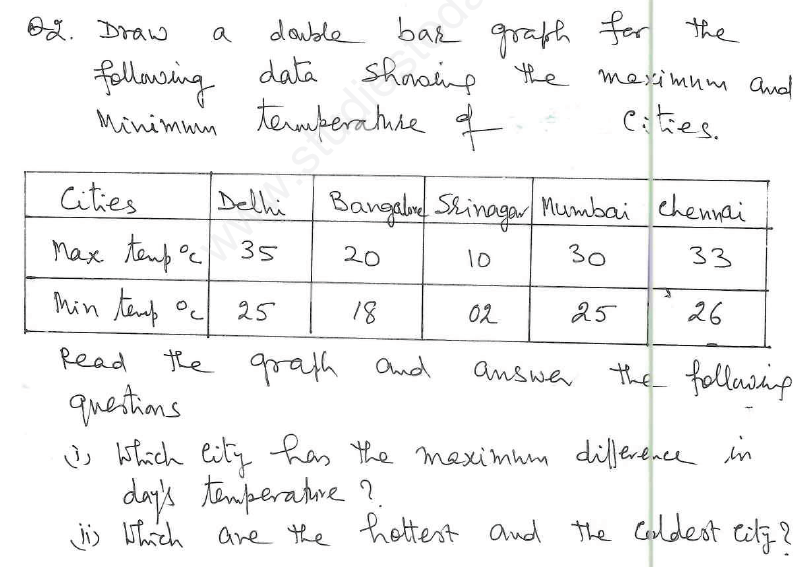 Q2. Draw a double bar graph for the
following data showing the maximum and
Minimum temperature of cities.
Cities Delhi Bangalore Srinagar Mumbai Chennai
Max temp °C 35 20 10 30 33
Min temp °C 25 18 02 25 26
Read the graph and answer the following
questions
(i) Which city has the maximum difference in
day's temperature?
(ii) Which are the hottest and the coldest city?